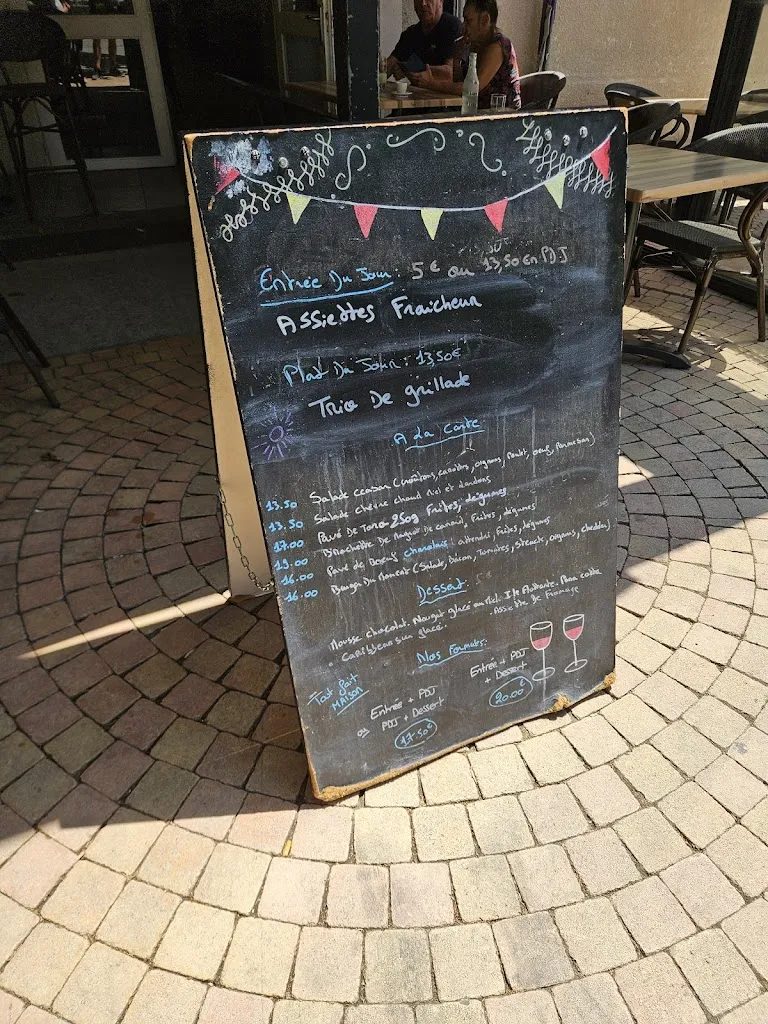 Entrée Du Jour: 5€ ou 13,50 en PDJ
Assiettes Fraicheur
Plat Du Jour: 13,50€
Trio De grillade
A La Carte
13.50 Salade ceasar (croûtons, oignons, Poulet, oeuf, Parmesan)
13.50 Salade chèvre chaud miel et
17.00 Pavé De Thon 250g Frites, légumes
19.00 Brochette De magret De canard, Frites, légumes
16.00 Pavé de Boeuf charolais: Frites, légumes
16.00 Burger Du moment (Salade, bacon, Tomates, Steack, oignons, cheddar)
Dessert: 5€
Mousse chocolat. Nougat glacé au miel. Ile Flottante. Pana cotta
. Caribbean sun glacé. . Assiette De Fromage
Nos Formules:
Tout fait
MAISON
Entrée + PDJ
ou PDJ + Dessert
17.50€
Entrée + PDJ
+ Dessert
20.00